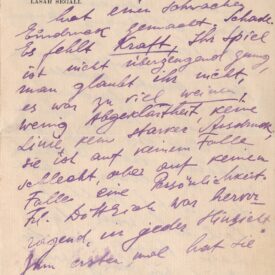 LASAR SEGALL
hat einen schwachen
Eindruck gemacht. Schade.
Es fehlt Kraft, Ihr Spiel
ist nicht überzeugend genug,
man glaubt ihr nicht,
es war zu viel weinen,
wenig Abgeklärtheit, keine
Linie, kein starker Ausdruck,
sie ist auf keinem Falle
schlecht, aber auf keinen
Falle eine Persönlichkeit.
Frl. war hervor-
ragend, in jeder Hinsicht
Zum ersten mal hat sie